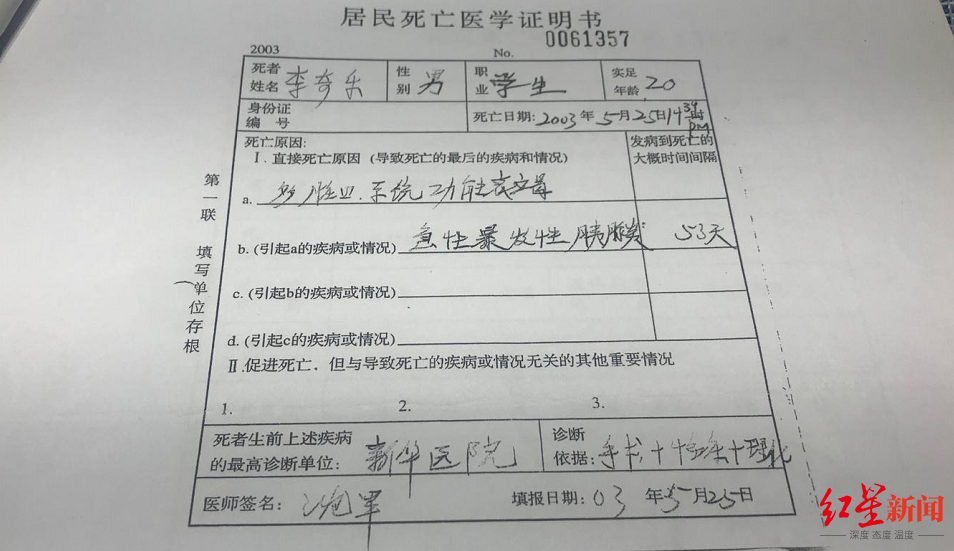 居民死亡医学证明书
2003 No. 0061357
死者姓名 李奇乐 性别 男 职业 学生 实足年龄 20
身份证编号 死亡日期: 2003年5月25日14时 PM
死亡原因: 发病到死亡的大概时间间隔
I. 直接死亡原因 (导致死亡的最后的疾病和情况)
a. 多 系统功能衰竭
b. (引起a的疾病或情况) 急性暴发性胰腺炎 53天
c. (引起b的疾病或情况)
d. (引起c的疾病或情况)
II.促进死亡．但与导致死亡的疾病或情况无关的其他重要情况
1. 2. 3.
死者生前上述疾病的最高诊断单位: 新华医院 诊断依据: 手术+ +理化
医师签名: 军 填报日期: 03年5月25日
第一联 填写单位存根
红星新闻
深度 态度 温度